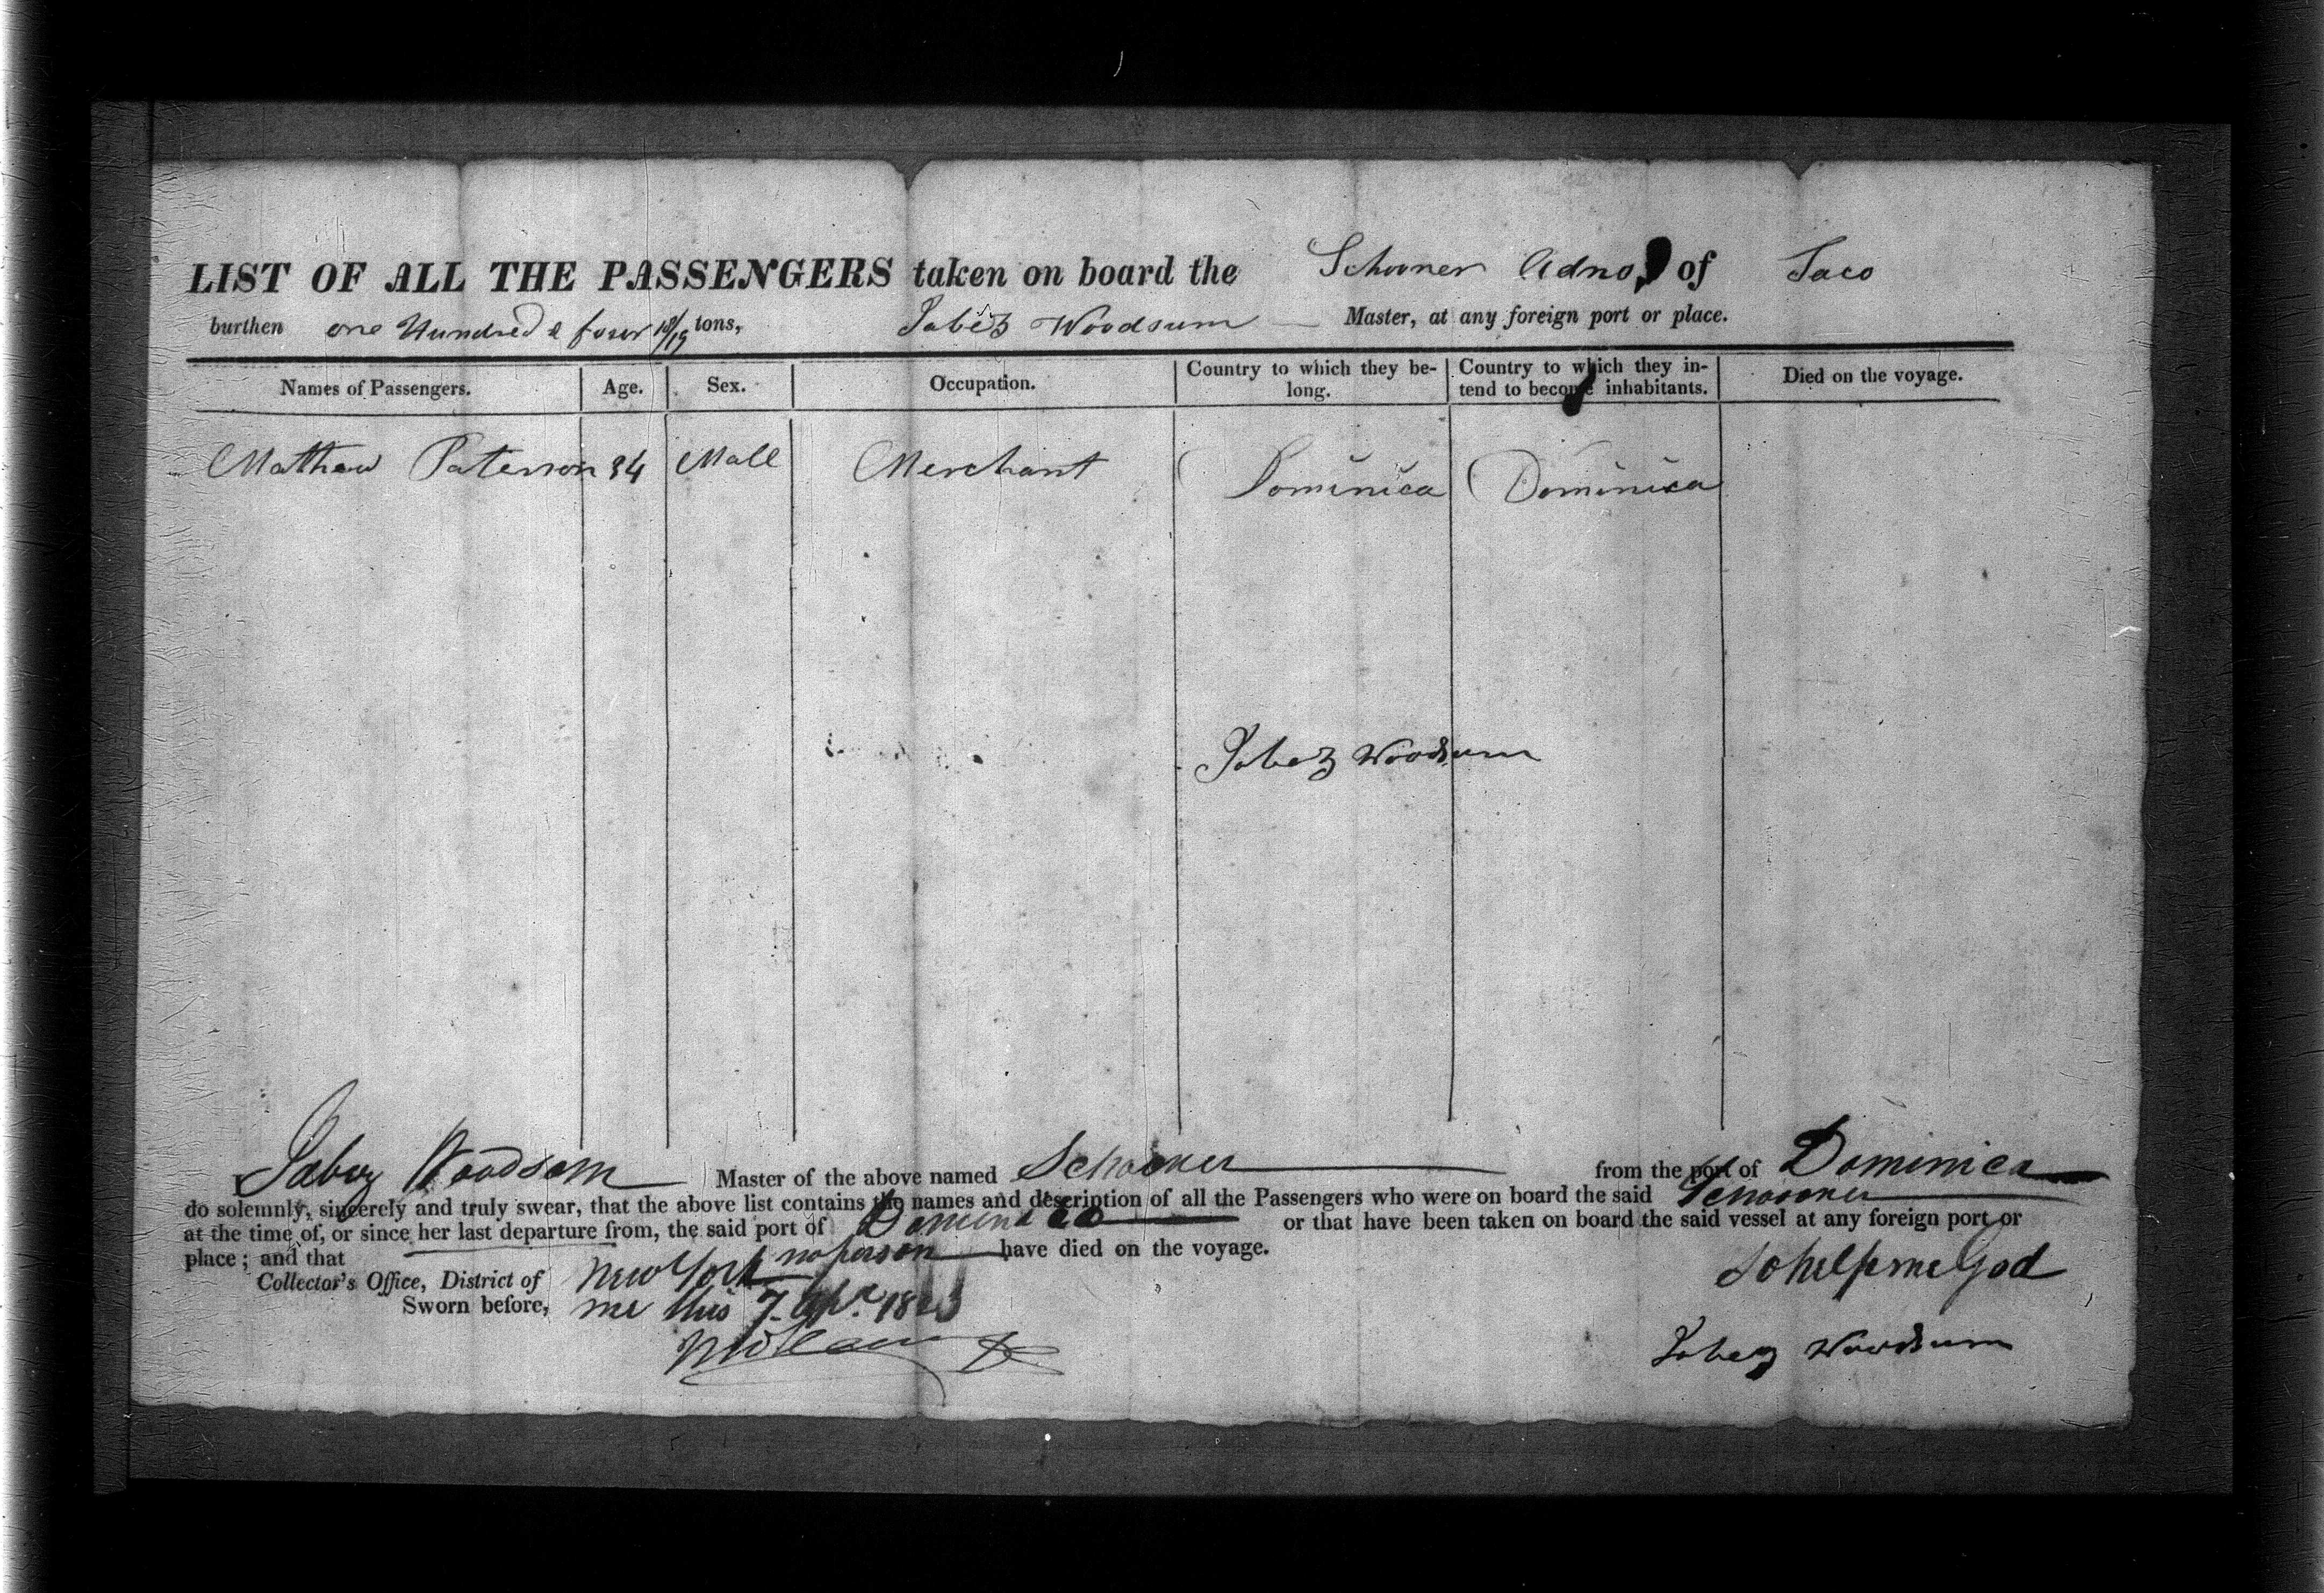 LIST OF ALL THE PASSENGERS taken on board the Schooner of Saco
burthen one Hundred & four tons, Jabez Woodsum Master, at any foreign port or place.
Names of Passengers. Age. Sex. Occupation. Country to which they be-long. Country to which they in-tend to become inhabitants. Died on the voyage.
Matthew Paterson 34 Male Merchant Dominica Dominica
Jabez Woodsum
I Jabez Woodsom Master of the above named Schooner from the port of Dominica
do solemnly, sincerely and truly swear, that the above list contains the names and description of all the Passengers who were on board the said Schooner
at the time of, or since her last departure from, the said port of Dominica or that have been taken on board the said vessel at any foreign port or
place; and that no person have died on the voyage.
Collector's Office, District of New York So help me God
Sworn before, me this 7 Apr.
Jabez Woodsum